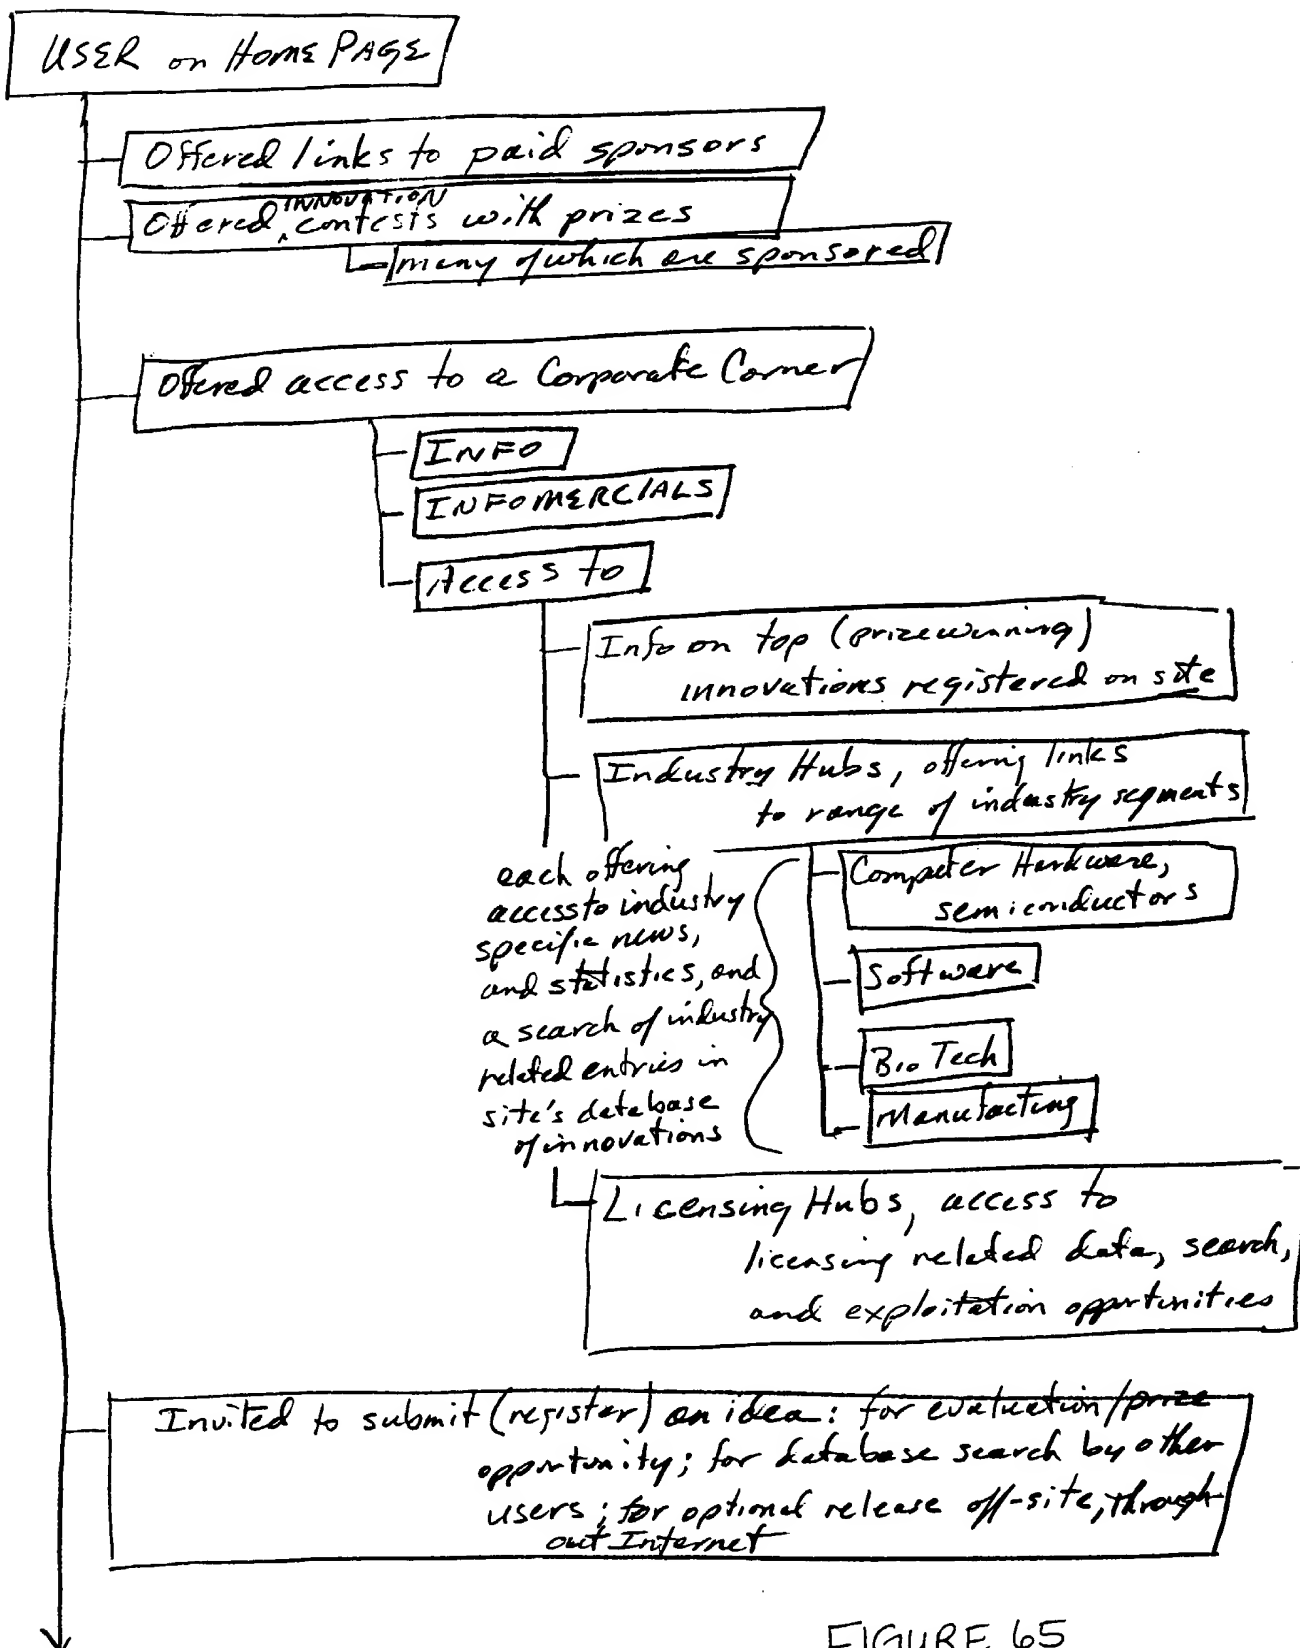 USER on HOME PAGE
Offered links to paid sponsors
INNOVATION
Offered ‸ contests with prizes
many of which are sponsored
Offered access to a Corporate Corner
INFO
INFOMERCIALS
Access to
Info on top (prizewinning)
innovations registered on site
Industry Hubs, offering links
to range of industry segments
each offering
access to industry
specific news,
and statistics, and
a search of industry
related entries in
site's database
of innovations
Computer Hardware,
semiconductors
Software
Bio Tech
Manufacting
Licensing Hubs, access to
licensing related data, search,
and exploitation opportunities
Invited to submit (register) an idea: for evaluation/prize
opportunity; for database search by other
users; for optional release off-site, through-
out Internet
FIGURE 65